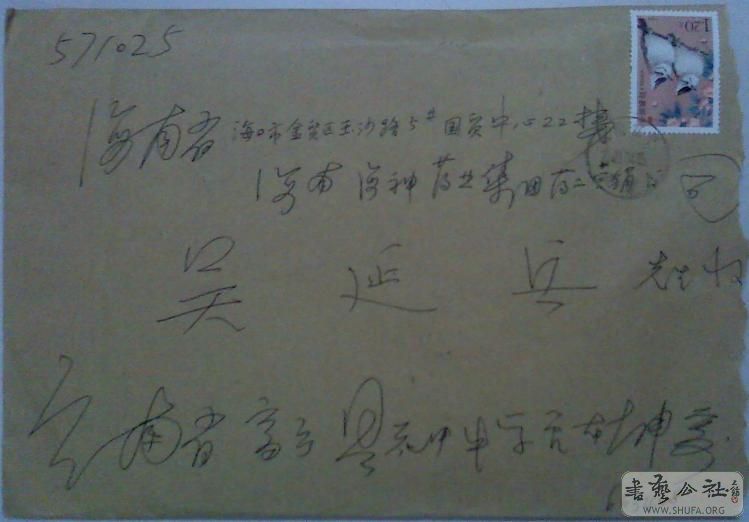 571025
海南省海口市金贸区玉沙路5#国贸中心22楼
海南海神药业集团药业营销公司
吴延兵 先生收
云南省富宁县
书艺公社
WWW.SHUFA.ORG